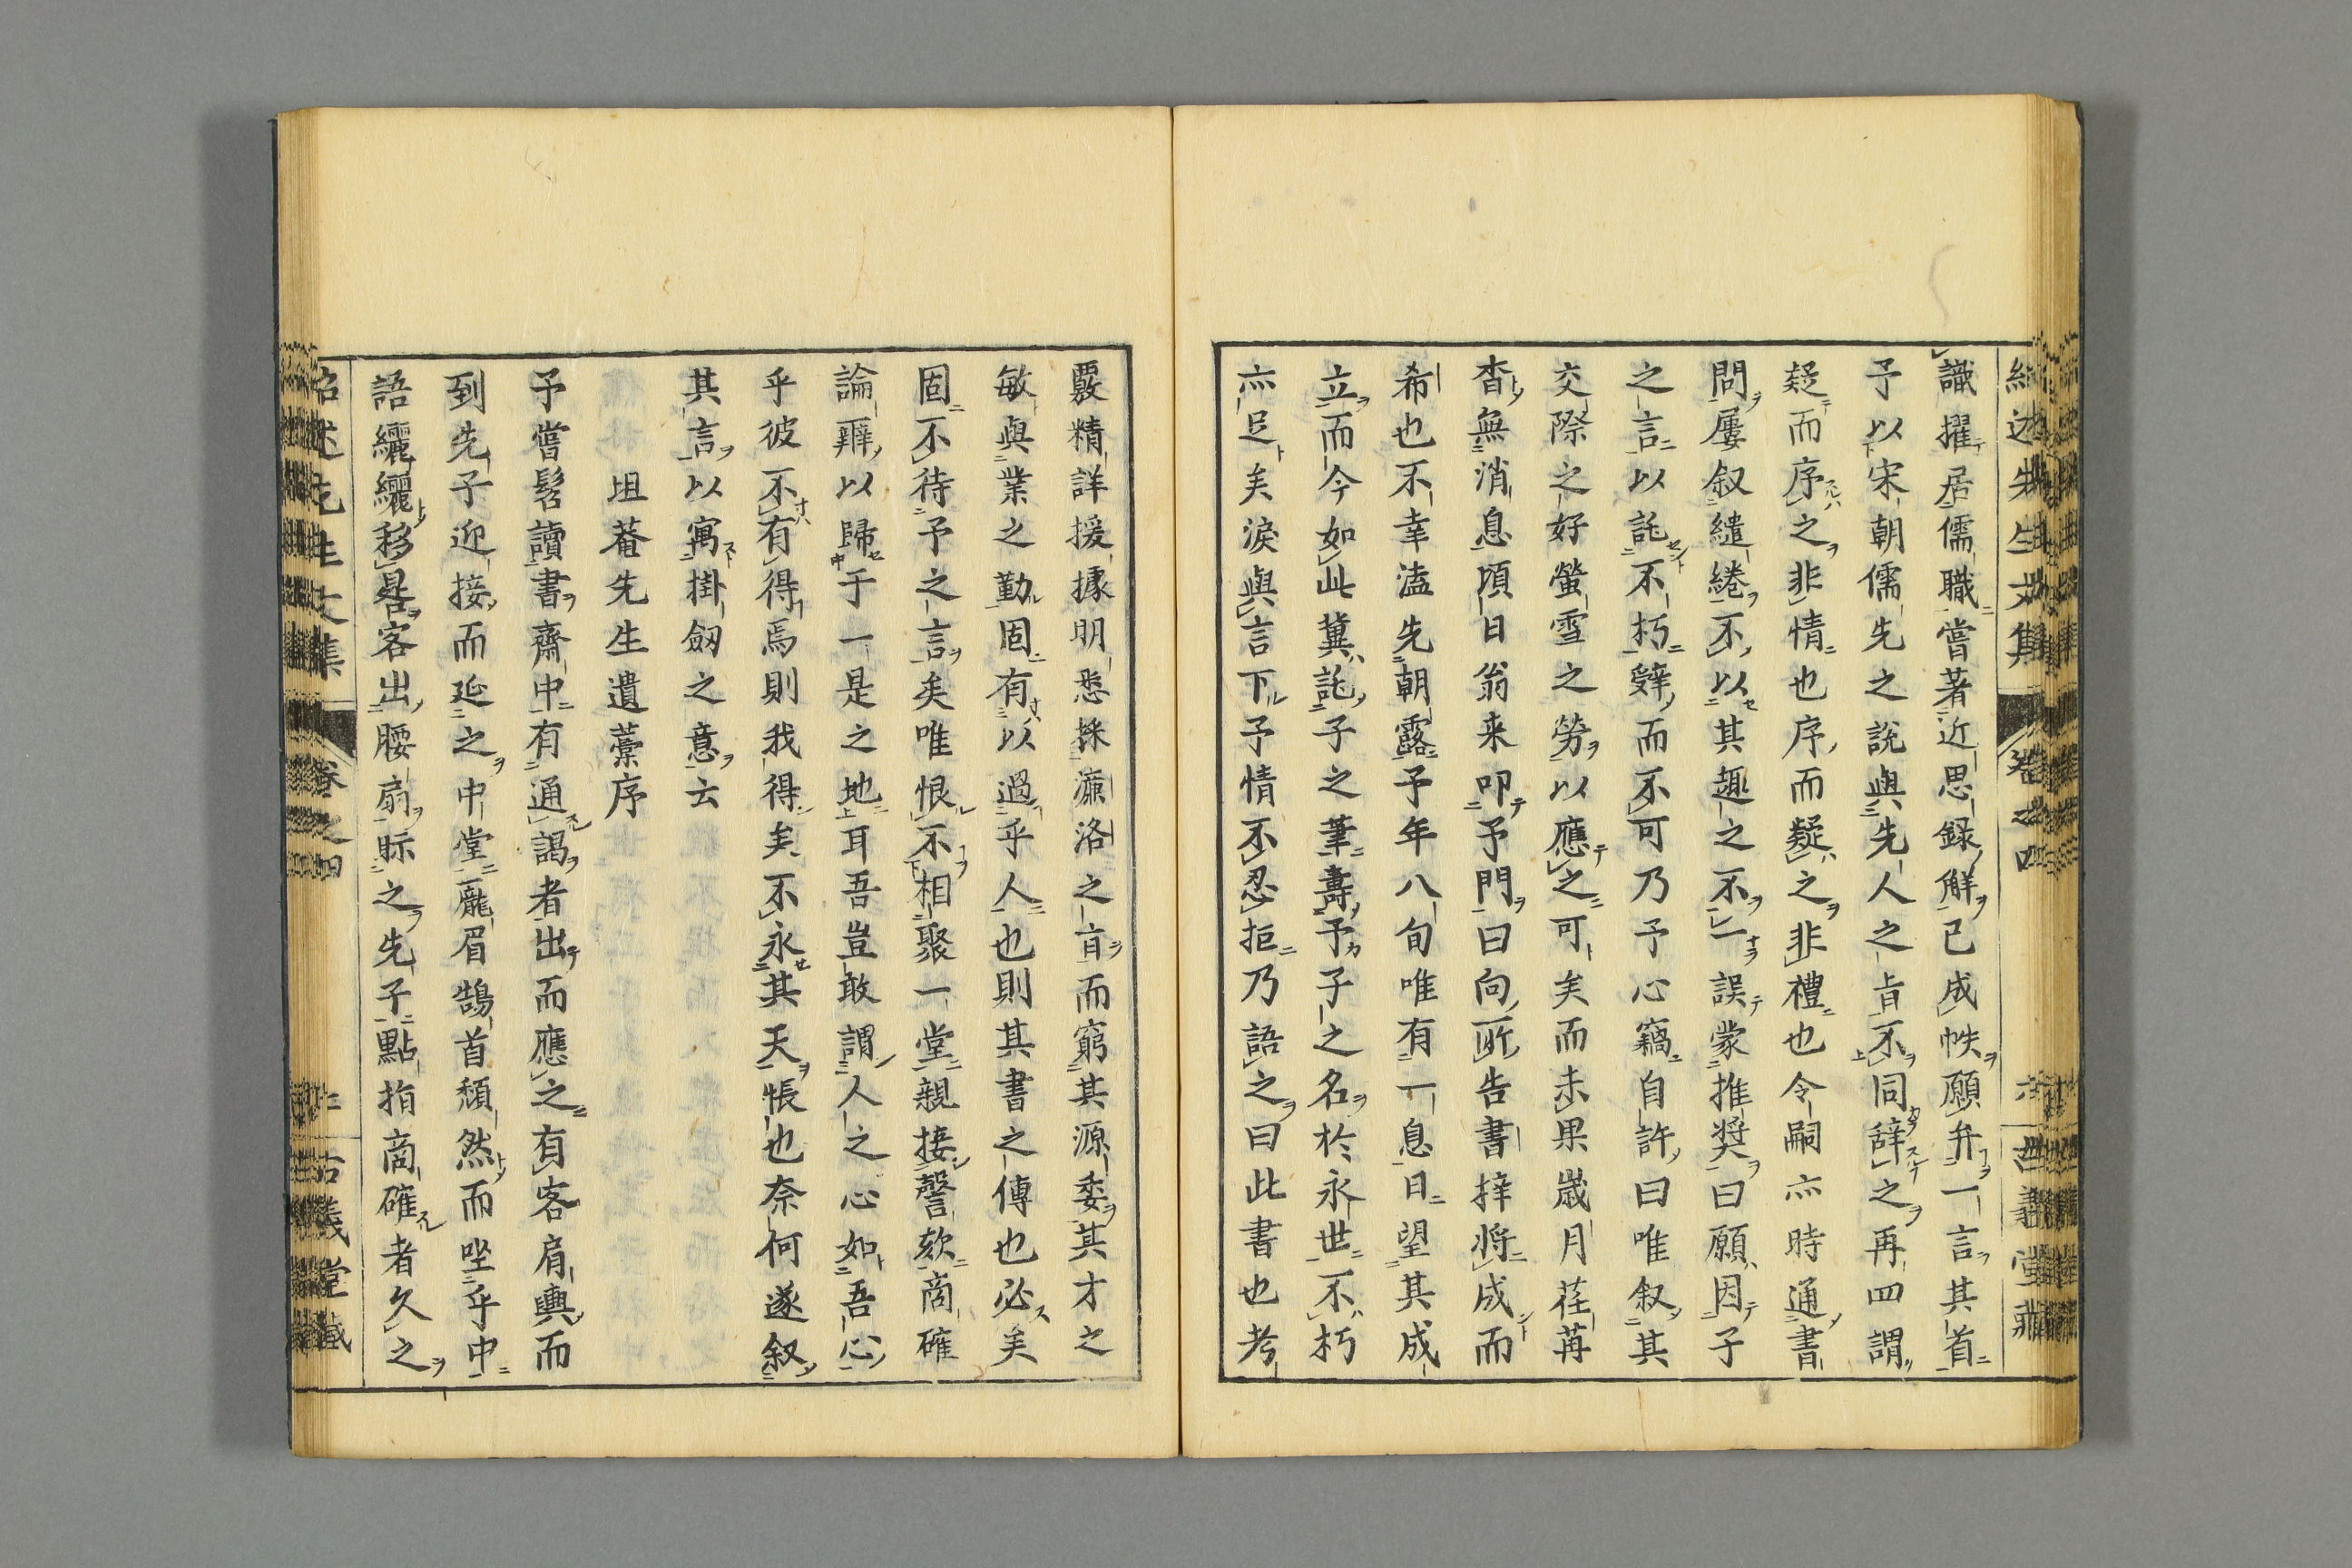 紹述先生文集 卷之四 古義堂藏
識擢居儒職嘗著近思録觧已成帙願弁一言其首
予以宋朝儒先之說與先人之旨不同辞之再四謂
疑而序之非情也序而疑之非禮也令嗣亦時通書
問屢叙繾綣不以其趣之不一誤蒙推奨曰願因子
之言以託不朽辤而不可乃予心竊自許曰唯叙其
交際之好螢雪之勞以應之可矣而未果歳月荏苒
杳無消息頃日翁来叩予門曰向所告書梓将成而
希也不幸溘先朝露予年八旬唯有一息日望其成
立而今如此冀託子之筆壽予子之名於永世不朽
亦足矣淚與言下予情不忍拒乃語之曰此書也考
覈精詳援據明悉採濂洛之㫖而窮其源委其才之
敏與業之勤固有以過乎人也則其書之傳也必矣
固不待予之言矣唯恨不相聚一堂親接謦欬商確
論辨以歸于一是之地耳吾豈敢謂人之心如吾心
乎彼不有得焉則我得矣不永其天悵也奈何遂叙
其言以寓掛劒之意云
坦菴先生遺藁序
予嘗髫讀書齋中有通謁者出而應之有客肩輿而
到先子迎接而延之中堂龐眉鵠首頽然而坐乎中
語纚纚移晷客出腰扇眎之先子點指商確者久之
紹述先生文集 卷之四 古義堂藏